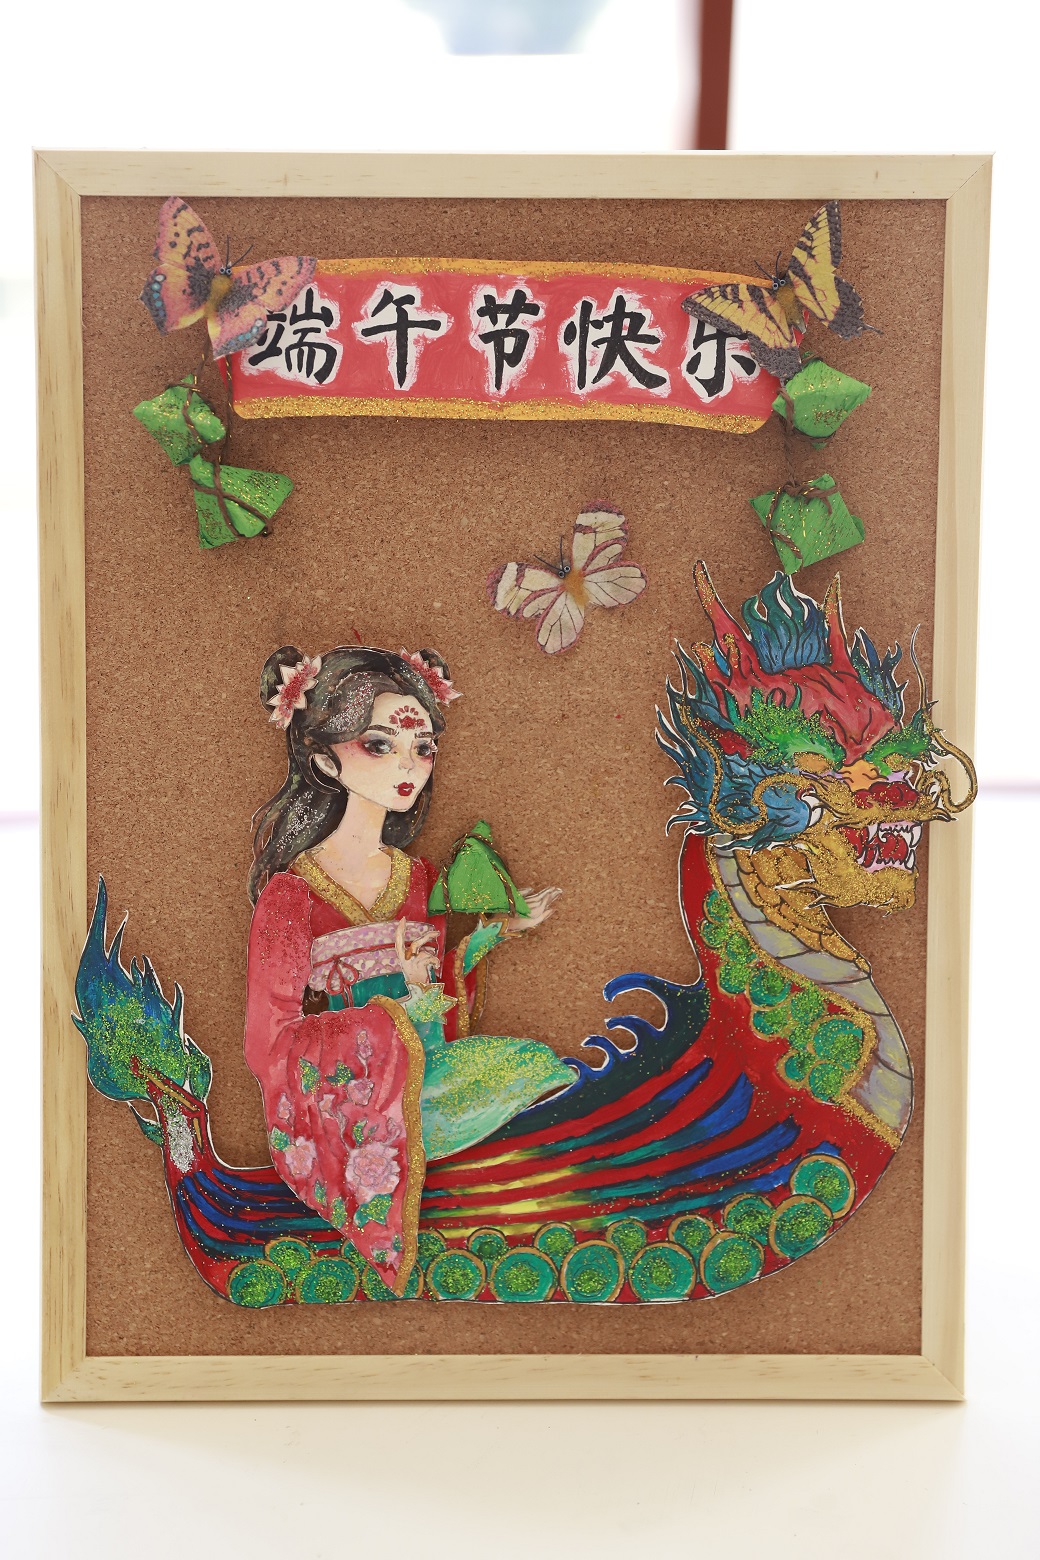 端午节快乐